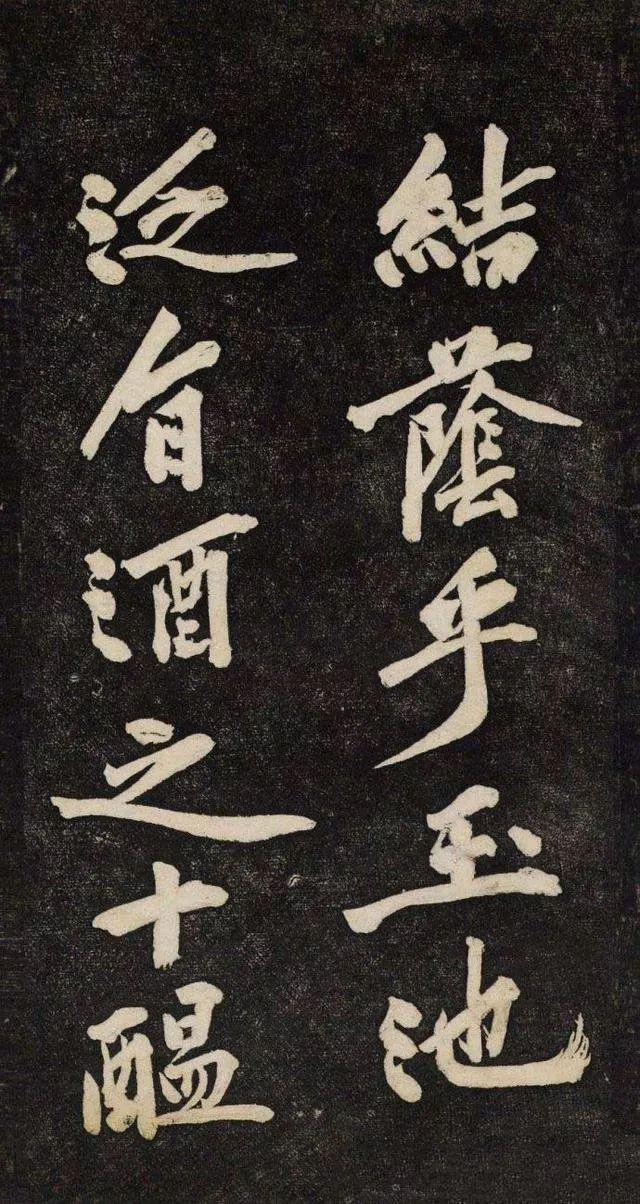 結蔭乎玉池
泛旨酒之十醖